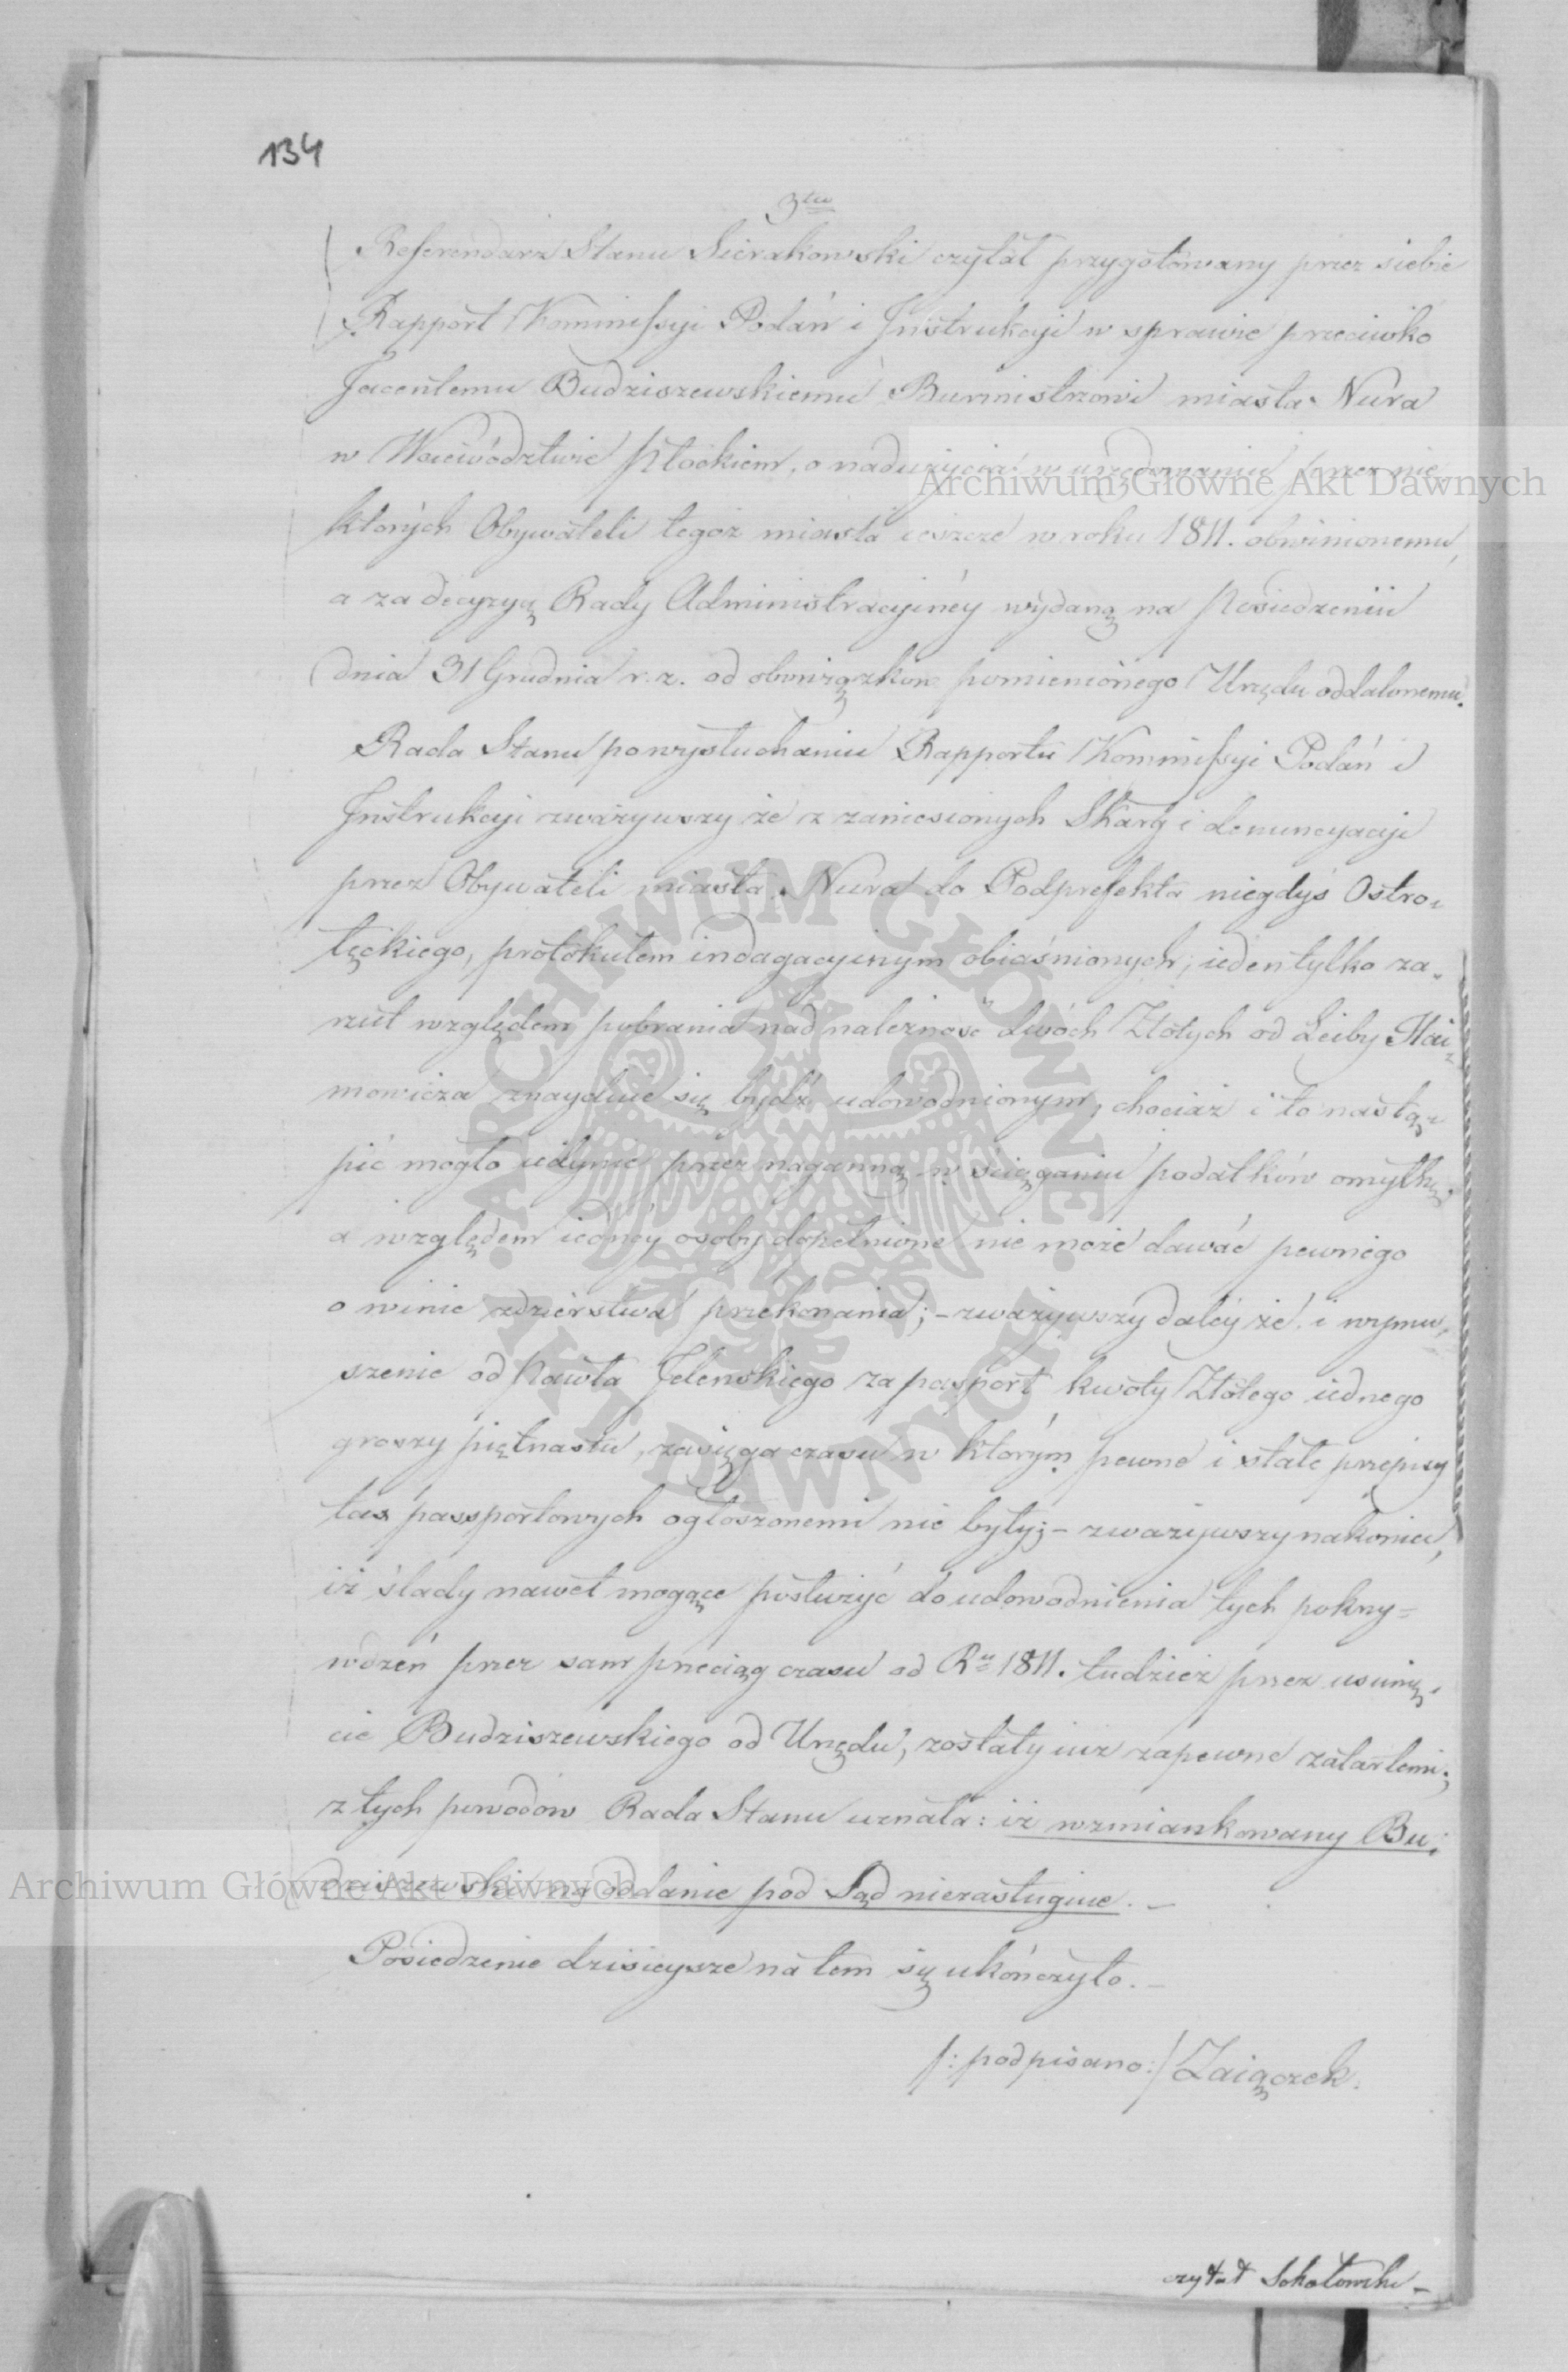 134
3tio
Referendarz Stanu Sierakowski czytał przygotowany przez siebie
Rapport Kommissyi Podań i Jnstrukcyi w sprawie przeciwko
Jacentemu Budziszewskiemu Burmistrzowi miasta Nura
w Woiewództwie Płockiem, o nadużycia w urzędowaniu przez nie
Archiwum Główne Akt Dawnych
których Obywateli tegoż miasta ieszcze w roku 1811. obwinionemu,
a za decyzyą Rady Administracyinéy wydaną na Posiedzeniu
dnia 31 Grudnia r. z. od obowiązków pomienionego Urzędu oddalonemu.
Rada Stanu po wysłuchaniu Rapportu Kommissyi Podań i
Jnstrukcyi zważywszy że z zaniesionych Skarg i denuncyacyi
przez Obywateli miasta Nura do Podprefekta niegdyś Ostro-
łęckiego, protokułem indagacyinym obiaśnionych, ieden tylko za-
rzut względem pobrania nad należność dwóch Złotych od Leiby Hai-
mowicza znayduie się bydź udowodnionym, chociaż i to nastą-
pić mogło iedynie przez naganną w ściąganiu podatków omyłkę,
a względem iednéy osoby dopełnione nie może dawać pewnego
o winie zdzierstwa przekonania; - zważywszy daléy że i wymu-
szenie od Pawła Jelenskiego za pasport kwoty Złotego iednego
groszy piętnastu, zasięga czasu w którym pewne i stałe przepisy
tax passportowych ogłoszonemi nie były; - zważywszy nakoniec,
iż ślady nawet mogące posłużyć do udowodnienia tych pokrzy=
wdzeń przez sam przeciąg czasu od Ru 1811. tudzież przez usunię-
cie Budziszewskiego od Urzędu, zostały iuż zapewne zatartemi;
z tych powodów Rada Stanu uznała: iż wzmiankowany Bu-
dziszewski na oddanie pod Sąd niezasługuie. -
Archiwum Główne Akt Dawnych
Posiedzenie dzisieysze na tem się ukończyło. -
/: podpisano :/ Zaiączek.
czytał Sokołowski -
ARCHIWUM GŁÓWNE AKT DAWNYCH